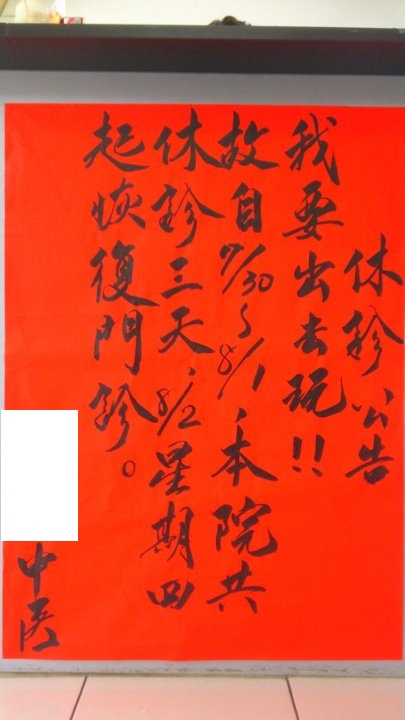 休診公告
我要出去玩!!
故自7/30~8/1,本院共
休診三天,8/2星期四
起恢復門診。
中医